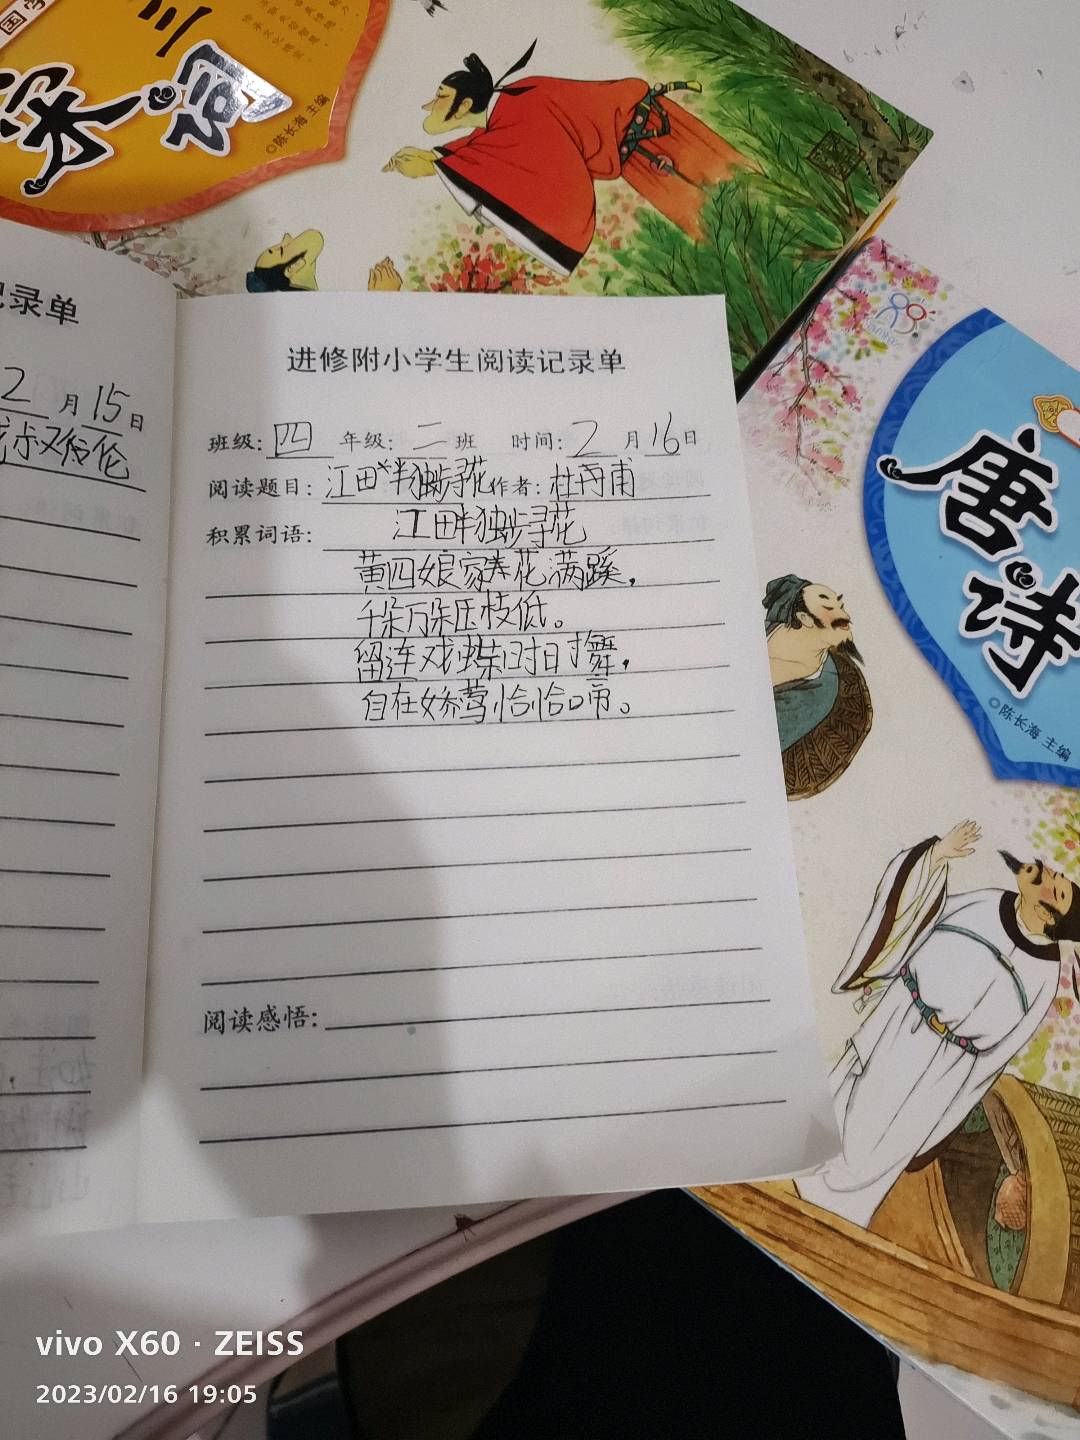 国学
宋词三
◎陈长海 主编
记录单
2月15日
进修附小学生阅读记录单
班级:四 年级:二班 时间:2月16日
阅读题目:江畔独步寻花作者:杜甫
积累词语: 江畔独步寻花
黄四娘家花满蹊,
千朵万朵压枝低。
留连戏蝶时时舞,
自在娇莺恰恰啼。
阅读感悟:
唐诗
◎陈长海 主编
vivo X60 · ZEISS
2023/02/16 19:05